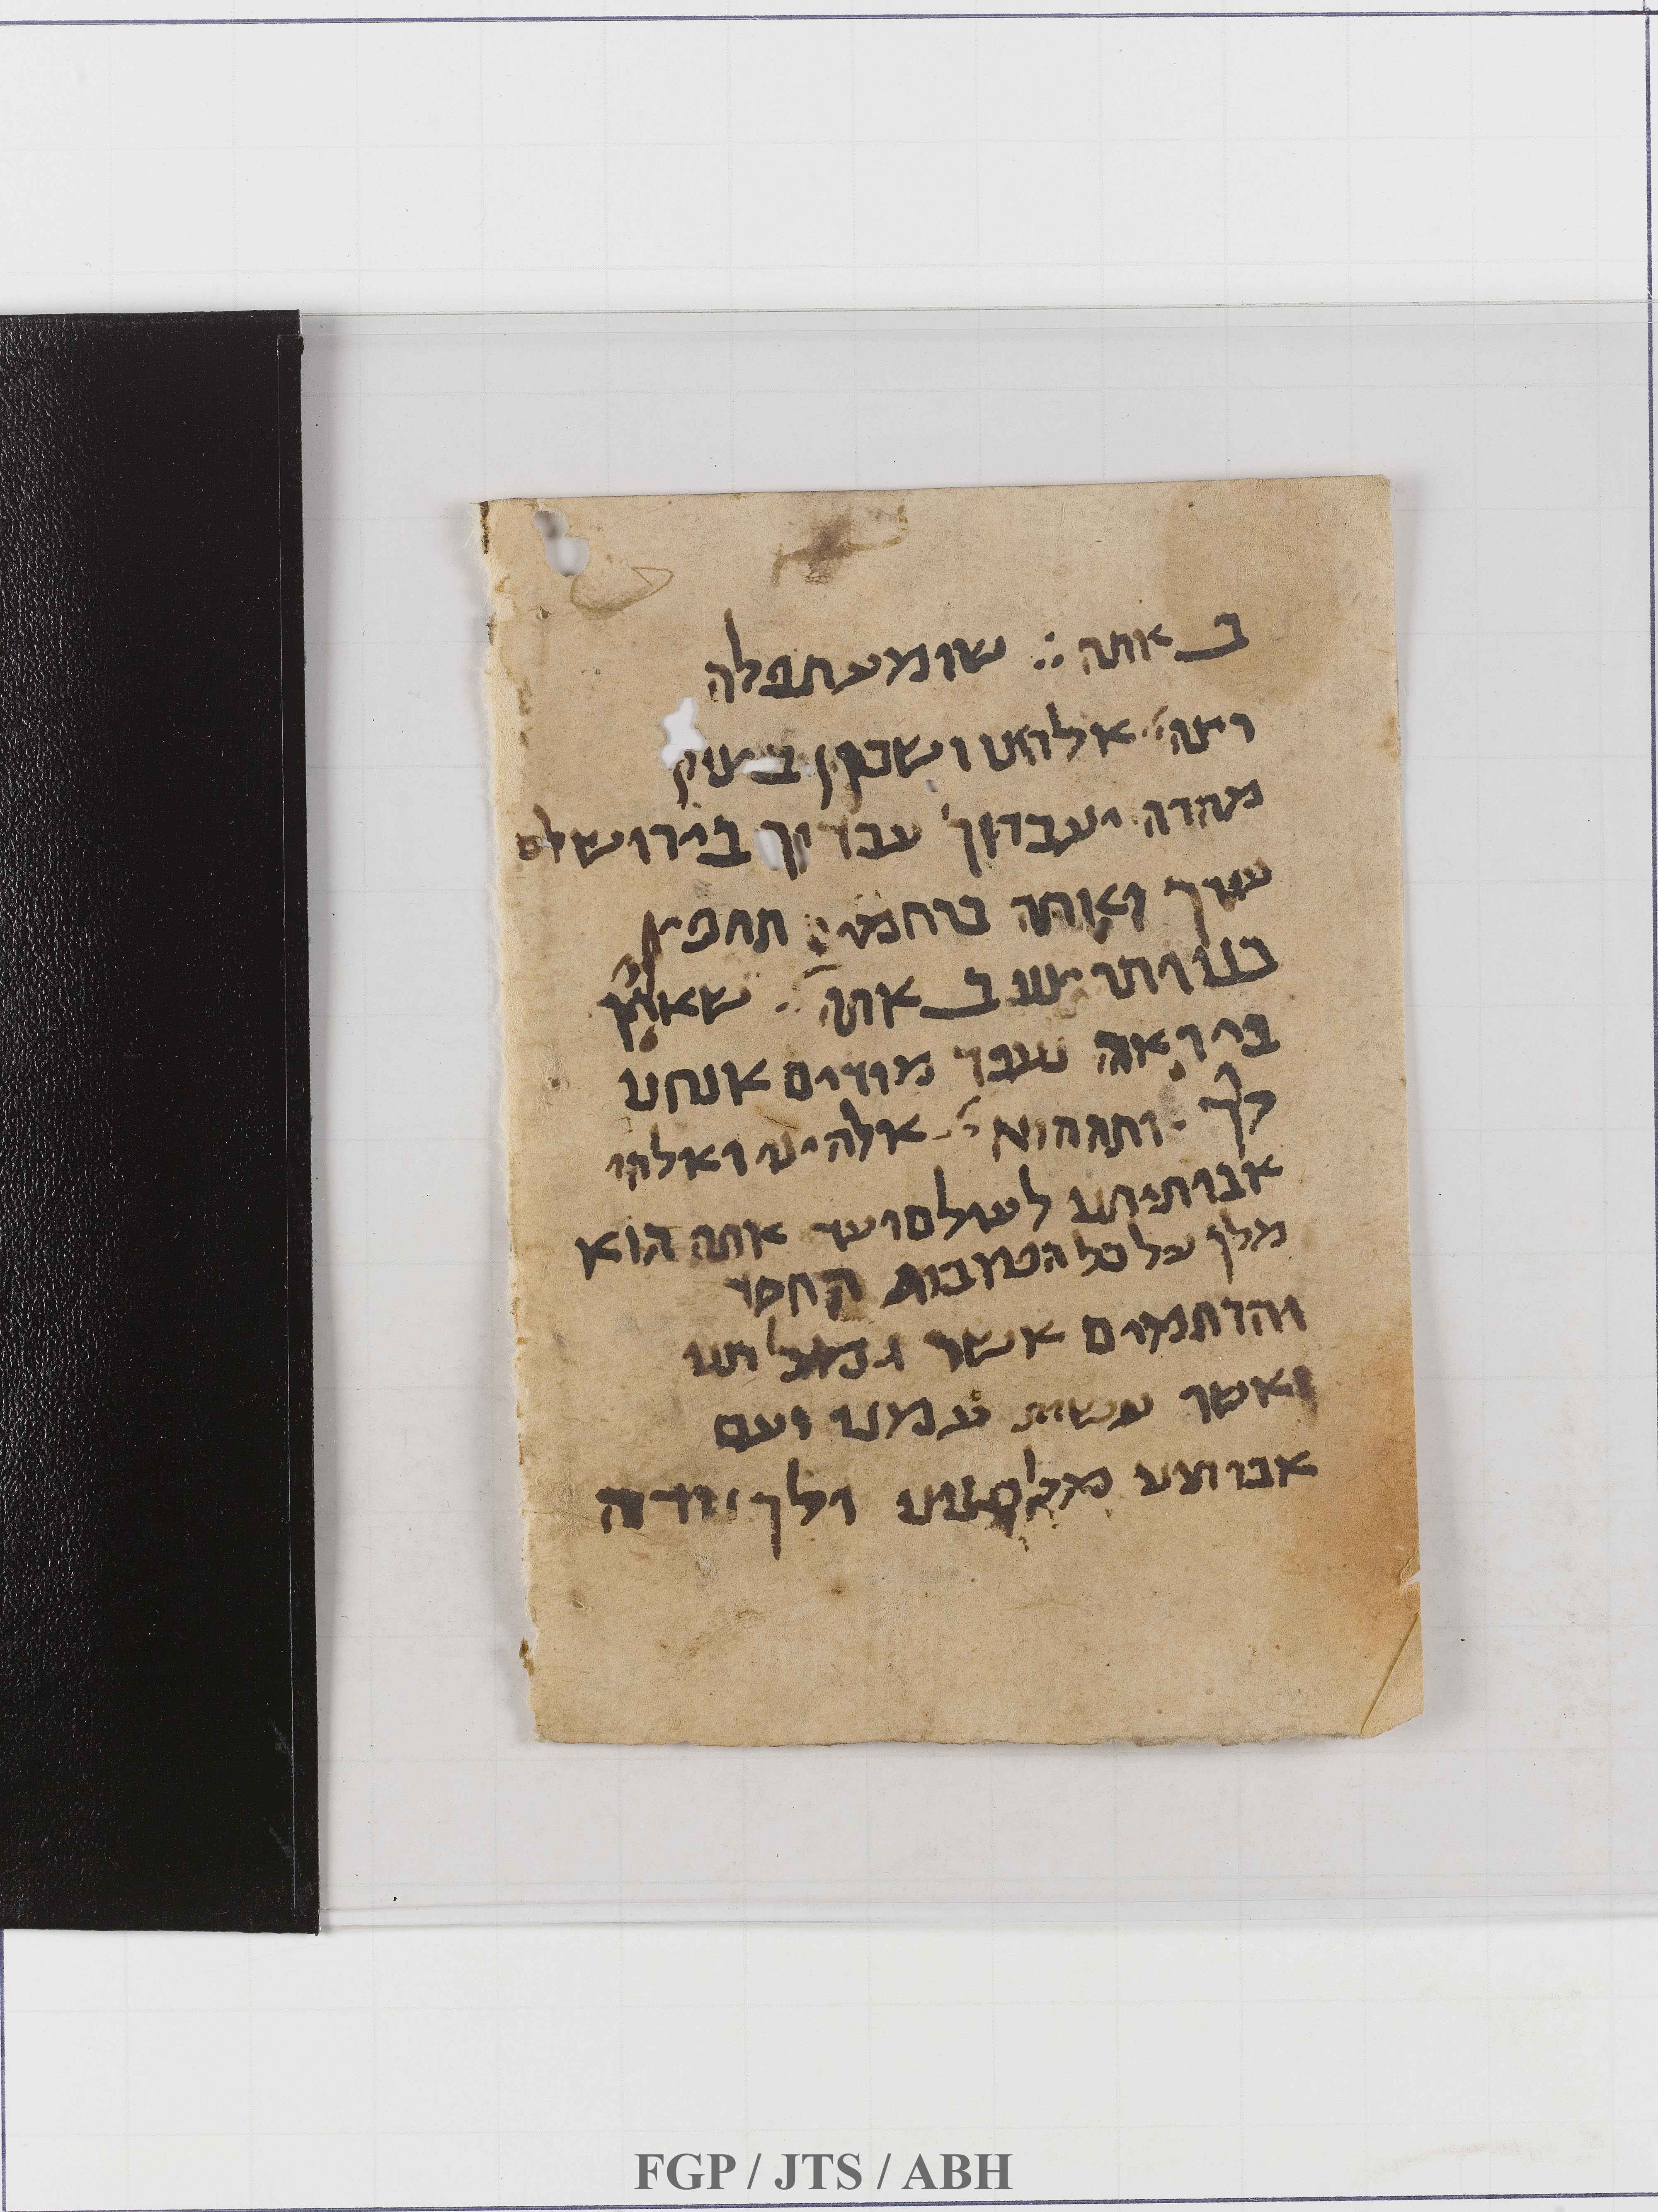 ב אתה :· שומע תפלה
רצה י אלהינו ושכון בציון
מהרה יעבדוך עבדיך בירושלם
עירך ואתה ברחמי תחפץ
בנו ותרצינו ב אתה · שאותך
ביראה נעבד מודים אנחנו
לך · ואתה הוא י אלהינו ואלהי
אבותינו לעולם ועד אתה הוא
מלך על כל הטובות החסד
והרחמים אשר גמלתנו
ואשר עשית עמנו ועם
אבותינו מלפנינו ולך יודה
FGP / JTS / ABH